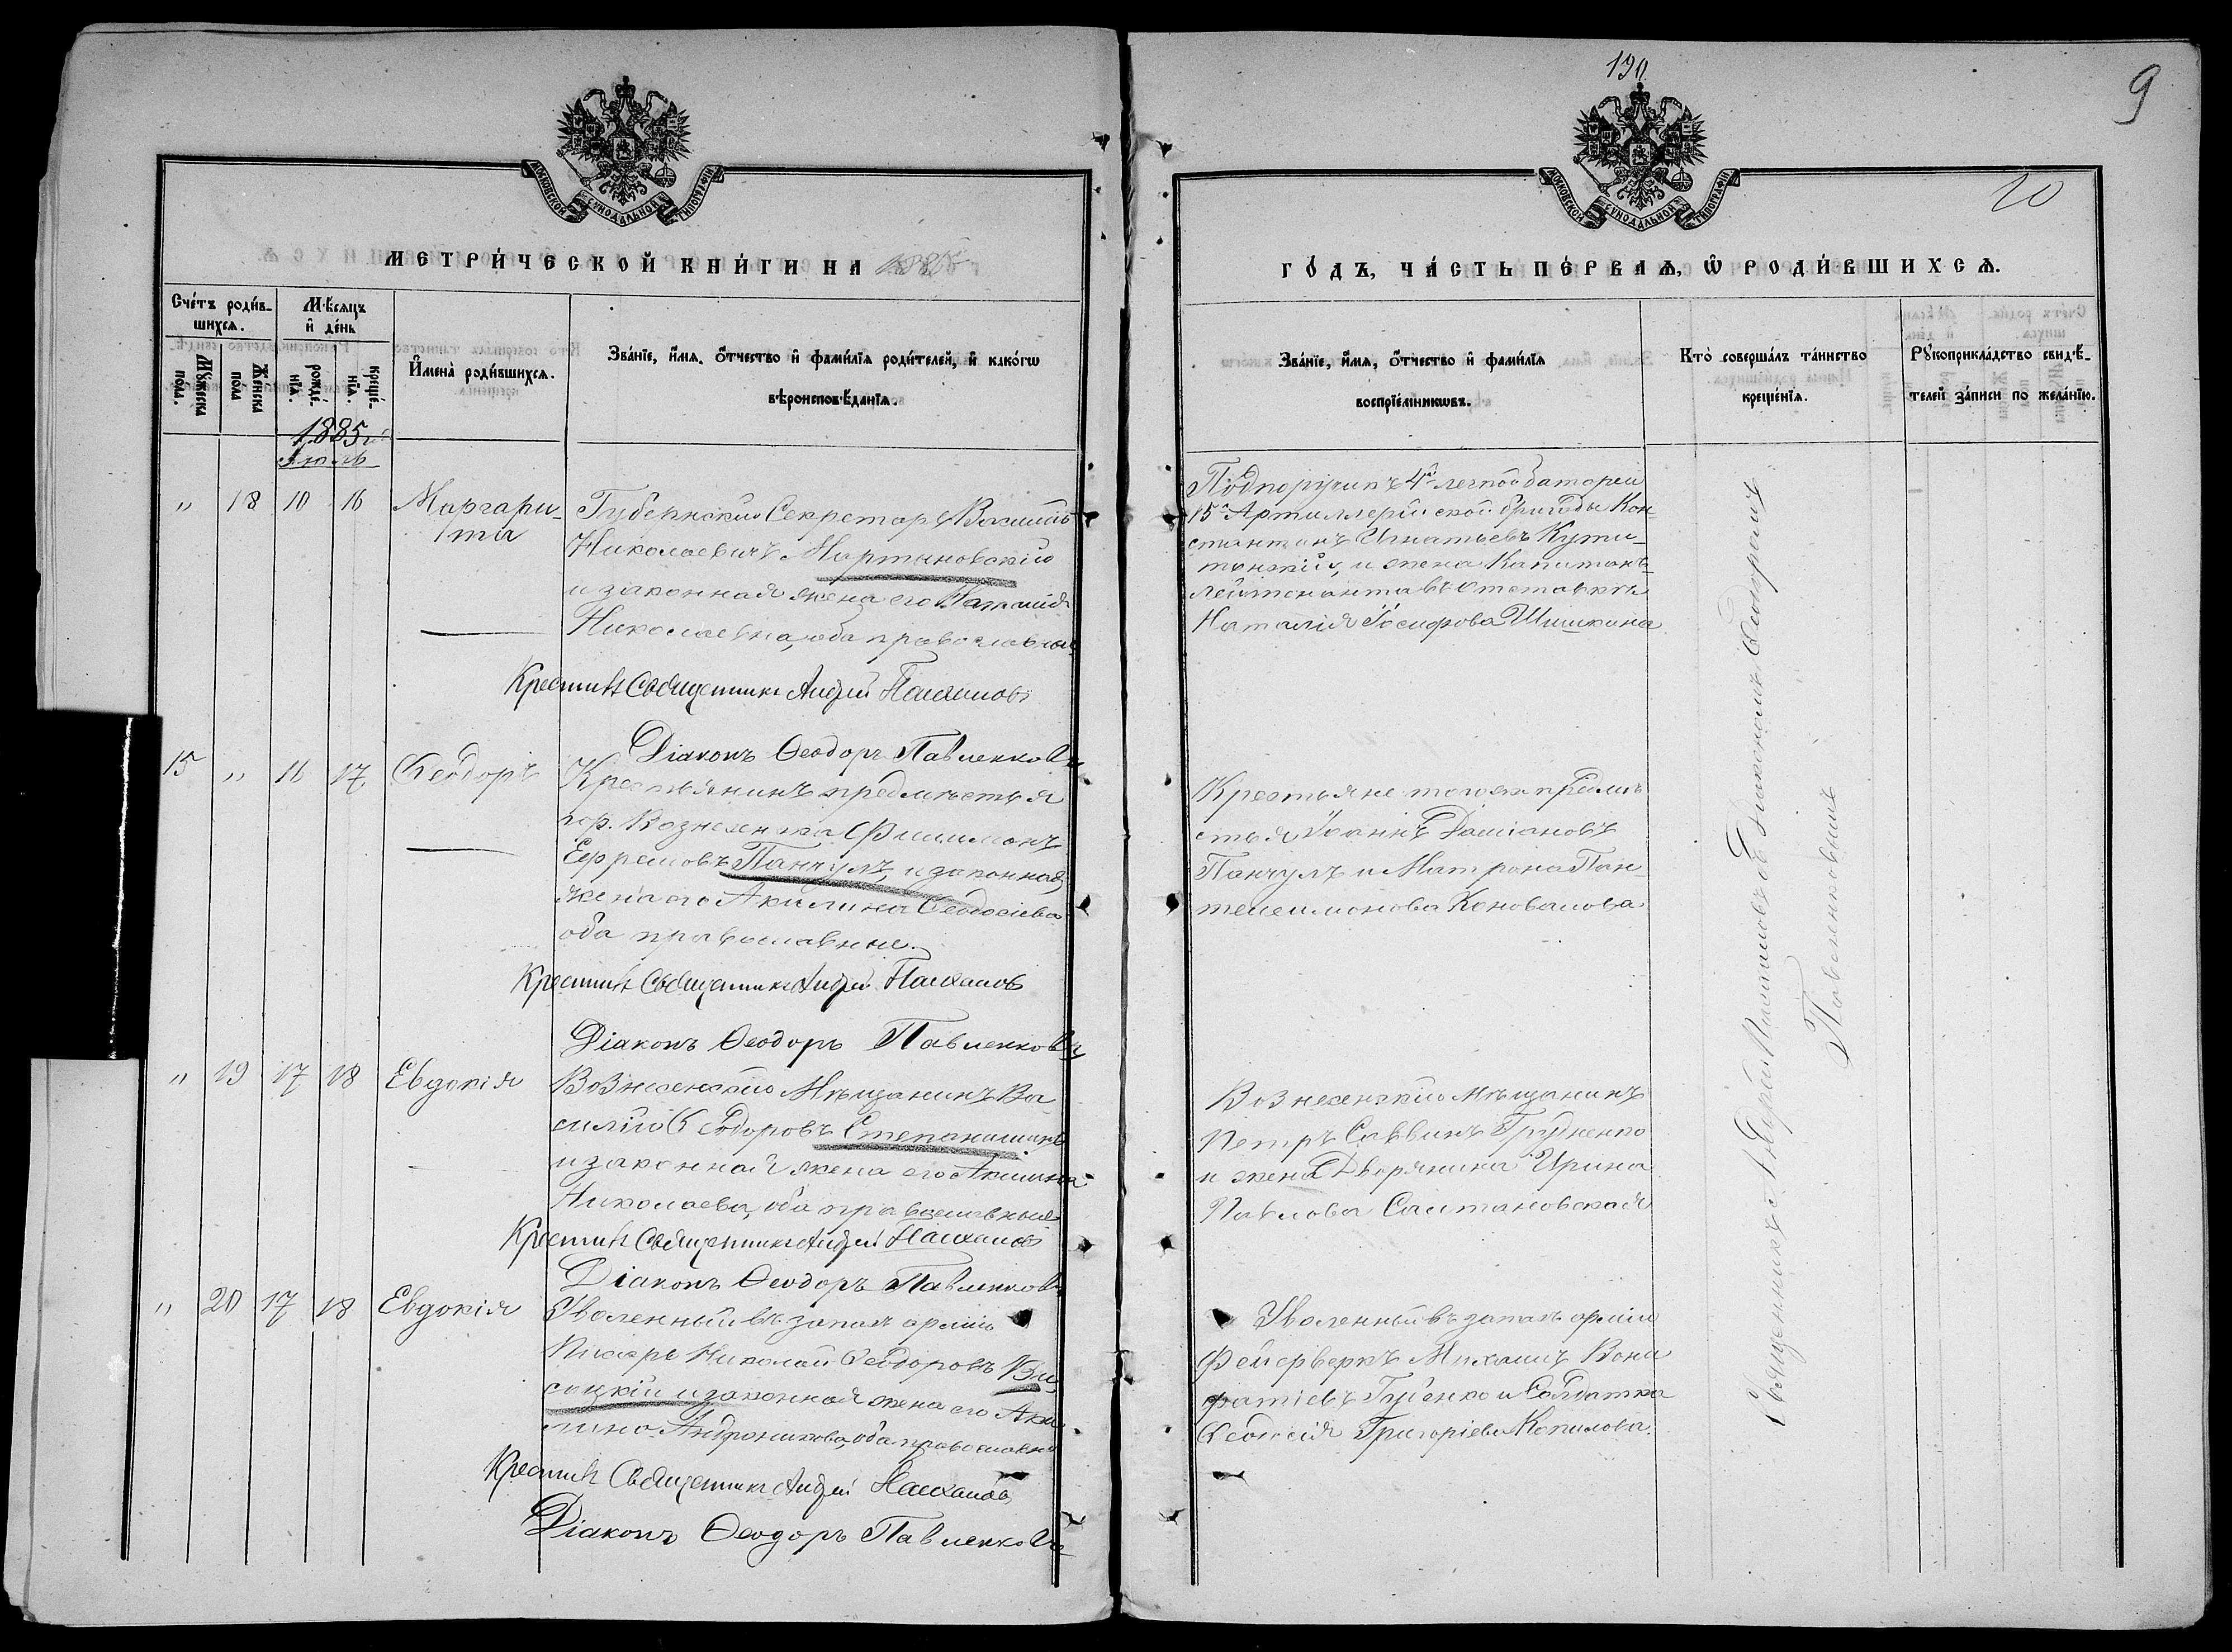 190
9
20
МОСКОВСКОЙ СУНОДАЛЬНОЙ ТИПОГРАФІИ
МОСКОВСКОЙ СУНОДАЛЬНОЙ ТИПОГРАФІИ
МЕТРИ́ЧЕСКОЙ КНИ́ГИ НА 1885
ГО́ДЪ, ЧА́СТЬ ПЕ́РВАѦ, Ѡ҆ РОДИ́ВШИХСѦ.
Сче́тъ роди́в-
шихсѧ.
Мꙋ́жеска
по́ла.
Же́нска
по́ла
Мѣ́сѧцъ
и҆ де́нь
рожде́-
нїѧ.
креще́-
нїѧ.
И҆мена̀ роди́вшихсѧ.
Зва́нїе, и҆́мѧ, ѻ҆́тчество и҆ фами́лїѧ роди́телей, и҆ како́гѡ
вѣроисповѣ́данїѧ.
Зва́нїе, и҆́мѧ, ѻ҆́тчество и҆ фами́лїѧ
воспрїе́мникѡвъ.
Кто̀ соверша́лъ та́инство
креще́нїѧ.
Рꙋкоприкла́дство свидѣ́-
телей за́писи по жела́нїю.
1885 г.
Іюль
" 18 10 16 Маргари-
та
Губернскій Секретарь Василій
Николаевичъ Мартыновскій
и законная жена его Наталія
Николаевна, оба православные
Крестилъ Священникъ Андрей
Діаконъ Ѳеодоръ Павленковъ
Подпоручикъ 4й легкой батареи
15й Артиллерійской бригады Кон-
стантинъ Игнатьевъ Кути-
тонскій, и жена Капитанъ-
лейтенанта въ отставкѣ
Наталія Іосифова Шишкина
15 " 16 17 Ѳеодоръ
Крестьянинъ предмѣстья
гор. Вознесенска Филимонъ
Ефремовъ Панчулъ, и законная
жена его Акилина Ѳеодосіева
оба православные.
Крестилъ Священникъ Андрей
Діаконъ Ѳеодоръ Павленковъ
Крестьяне того же предмѣ
стья Іоаннъ Даміановъ
Панчулъ и Матрона Пан
телеимонова Коновалова
" 19 17 18 Евдокія
Вознесенскій Мѣщанинъ Ва
силій Ѳеодоровъ
и законная жена его Акилина
Николаева, оба православные
Крестилъ Священникъ Андрей
Діаконъ Ѳеодоръ Павленковъ
Вознесенскій мѣщанинъ
Петръ Саввинъ Грудненко
и жена Дворянина Ирина
Павлова Салтановская
" 20 17 18 Евдокія
Уволенный въ запасъ арміи
Писарь Николай Ѳеодоровъ Вы
соцкій и законная жена его Аки
лина Андроникова, оба православные
Крестилъ Священникъ Андрей
Діаконъ Ѳеодоръ Павленковъ
Уволенный въ запасъ арміи
Фейерверкъ Михаилъ Вони
фатіевъ Губенко и Солдатка
Ѳеодосія Григоріева Копилова.
Священникъ Андрей съ Діакономъ Ѳеодоромъ
Павленковымъ